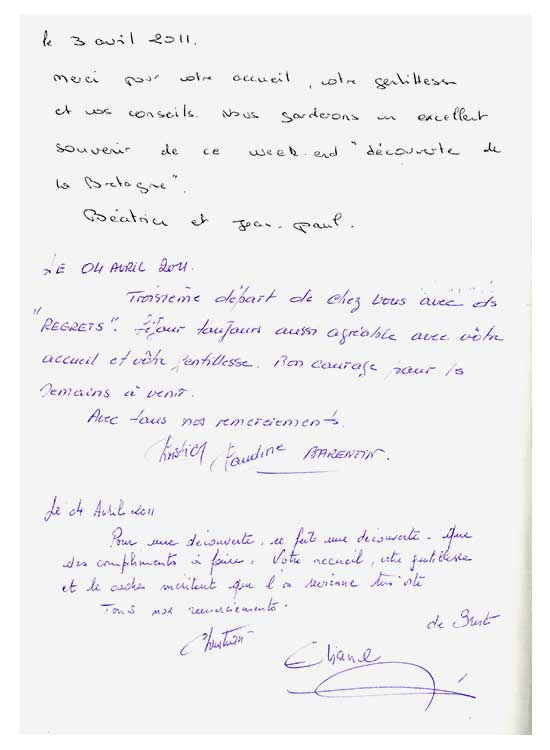 le 3 avril 2011.
Merci pour votre accueil, votre gentillesse
et vos conseils. Nous garderons un excellent
souvenir de ce week-end "découverte de
la Bretagne".
Béatrice et Jean-Paul.
LE 04 AVRIL 2011.
Troisième départ de chez vous avec des
"REGRETS". Séjour toujours aussi agréable avec vôtre
accueil et vôtre gentillesse. Bon courage pour les
semaines à venir.
Avec tous nos remerciements.
Claudine BARENTIN.
Le 04 Avril 2011
Pour une découverte, ce fut une découverte - Que
des compliments à faire. Votre accueil, votre gentillesse
et le cadre méritent que l'on revienne très vite
Tous nos remerciements.
de Brest
Christian
Eliane